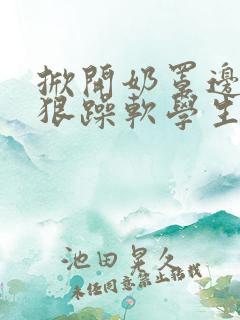 掀開奶罩邊
狠躁軟學生
池田晃久
未任同意禁止